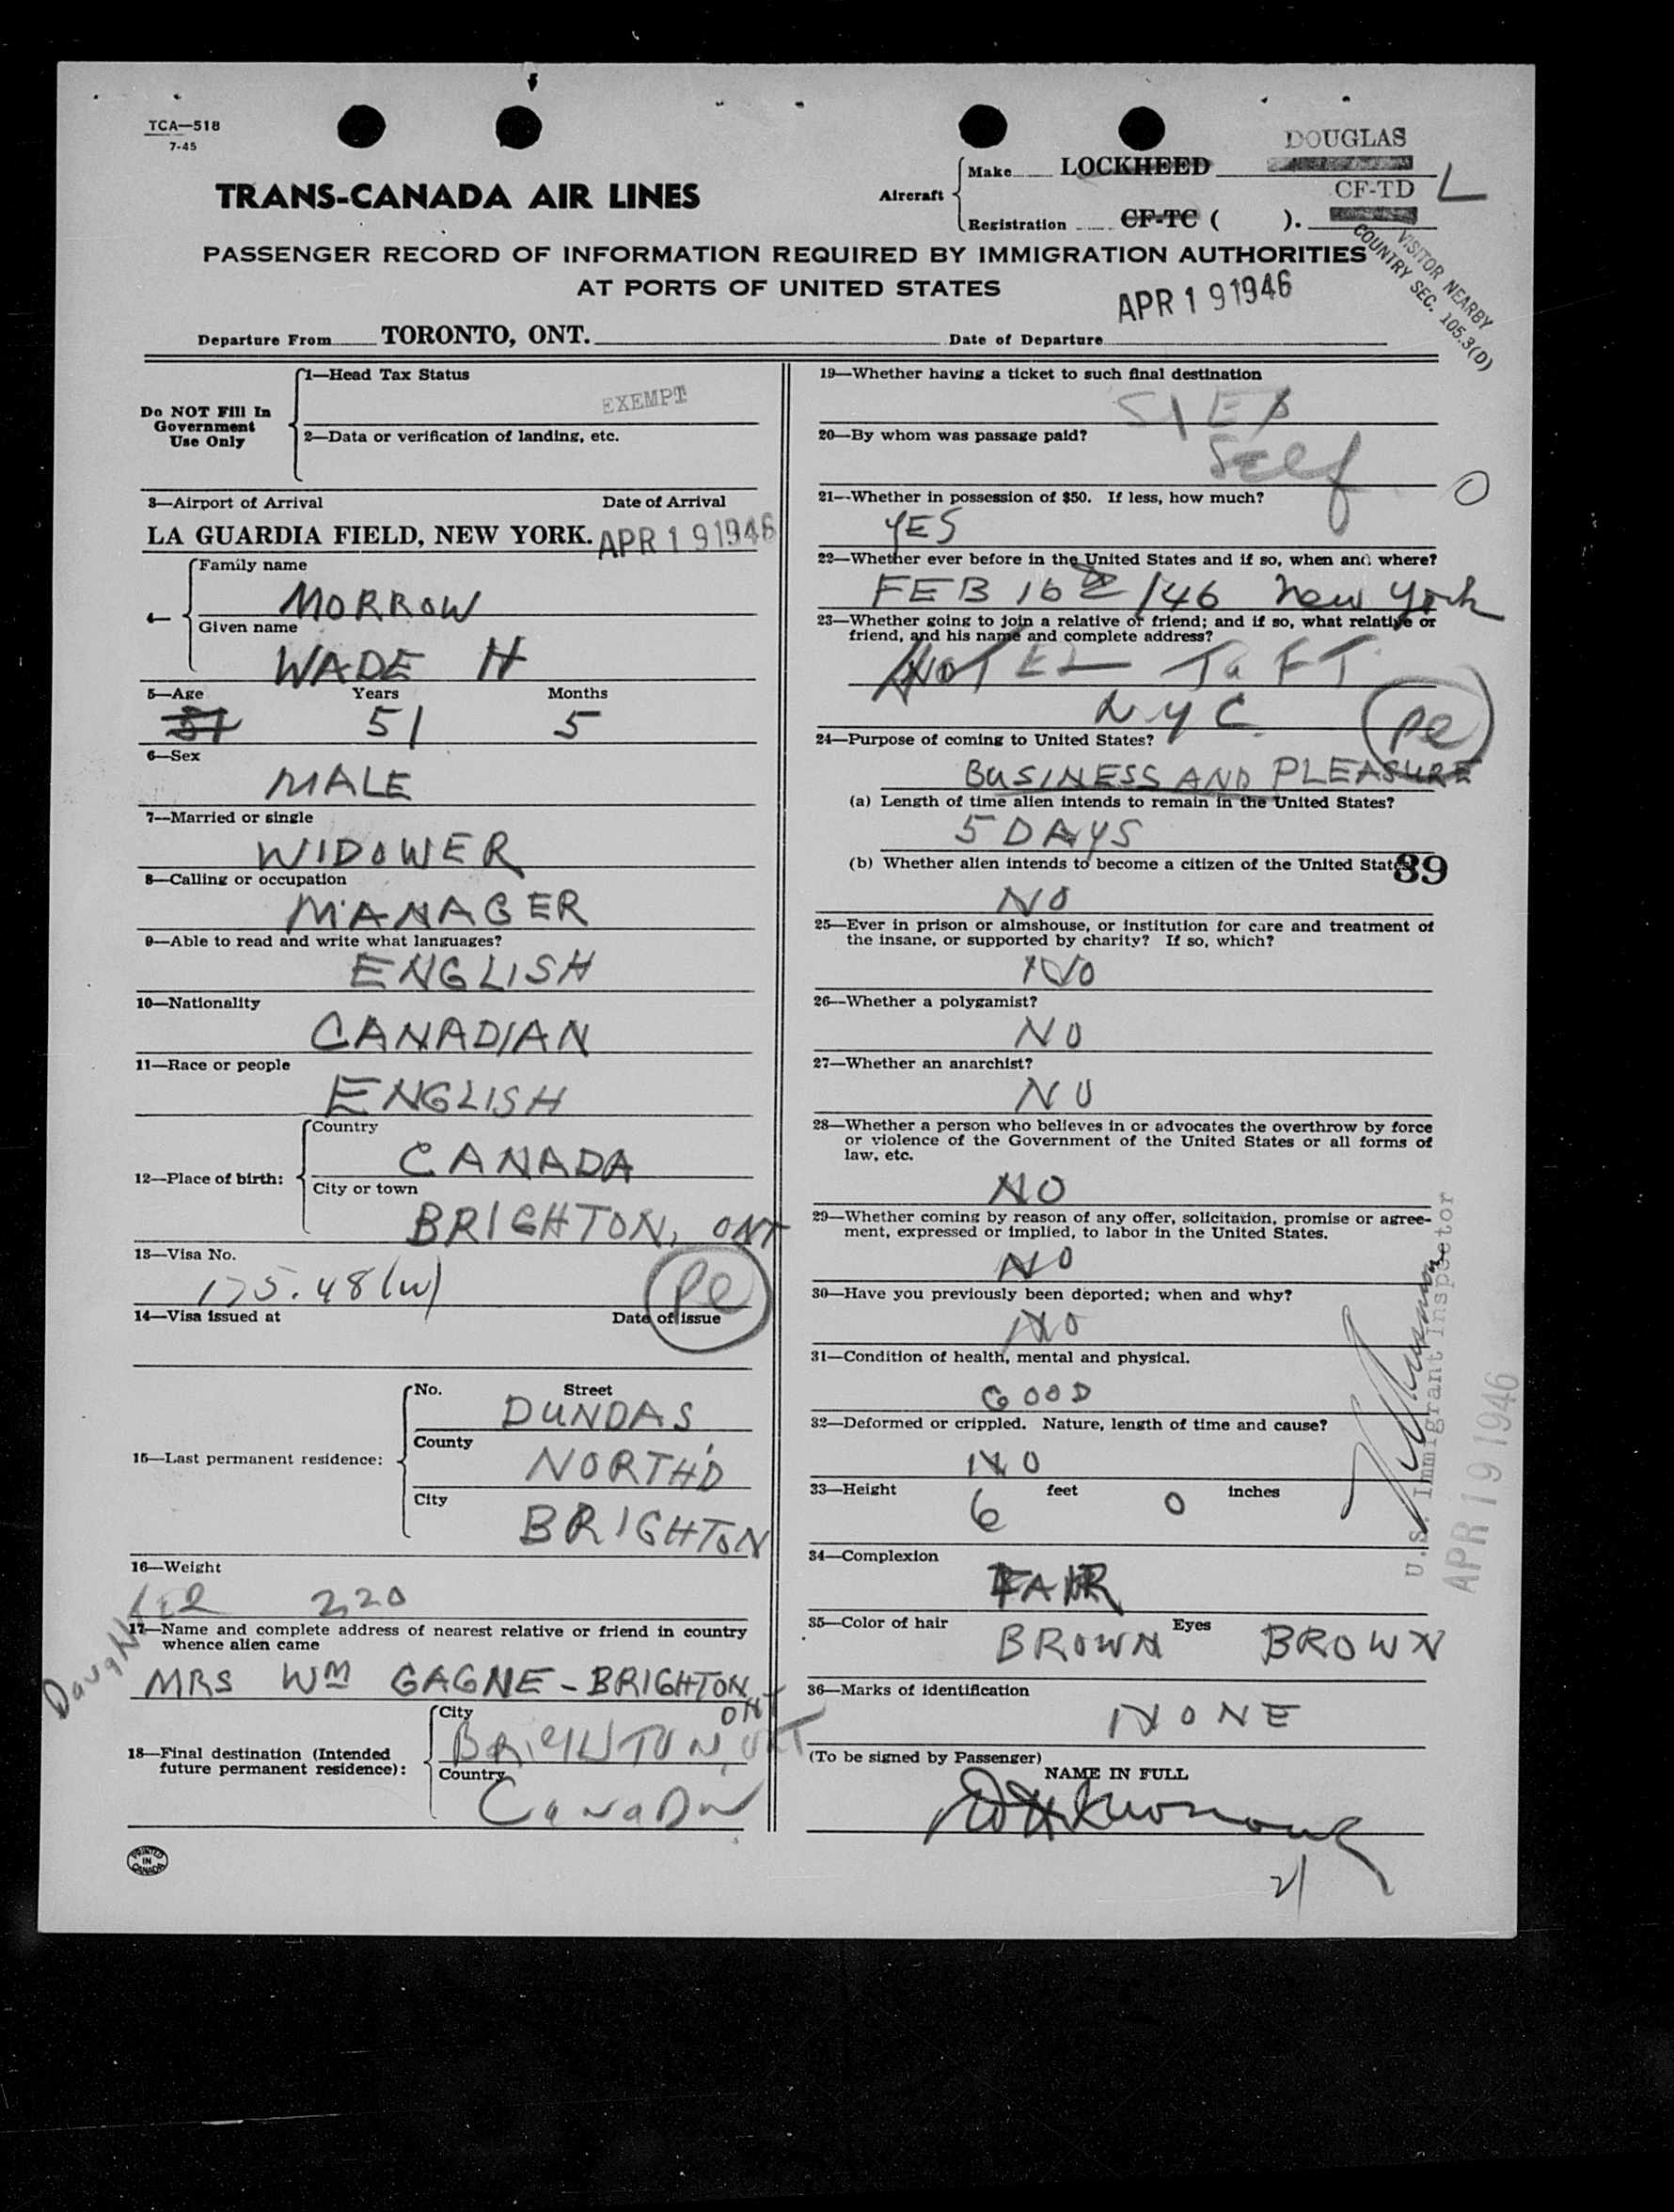 TCA—518
7-45
TRANS-CANADA AIR LINES
Aircraft
Make LOCKHEED
DOUGLAS
Registration CF-TC ( ).
CF-TD L
VISITOR NEARBY
COUNTRY SEC. 105.3(D)
PASSENGER RECORD OF INFORMATION REQUIRED BY IMMIGRATION AUTHORITIES
AT PORTS OF UNITED STATES
APR 19 1946
Departure From TORONTO, ONT.
Date of Departure
Do NOT Fill In
Government
Use Only
1—Head Tax Status
EXEMPT
2—Data or verification of landing, etc.
3—Airport of Arrival Date of Arrival
LA GUARDIA FIELD, NEW YORK. APR 19 1946
4—
Family name
MORROW
Given name
WADE H
5—Age Years Months
51 51 5
6—Sex
MALE
7—Married or single
WIDOWER
8—Calling or occupation
MANAGER
9—Able to read and write what languages?
ENGLISH
10—Nationality
CANADIAN
11—Race or people
ENGLISH
12—Place of birth:
Country
CANADA
City or town
BRIGHTON, ONT
13—Visa No.
175.48(w)
14—Visa issued at Date of issue
Pe
15—Last permanent residence:
No. Street
DUNDAS
County
NORTH'D
City
BRIGHTON
16—Weight
220
DaugHTER
17—Name and complete address of nearest relative or friend in country
whence alien came
MRS WM GAGNE - BRIGHTON
ONT
18—Final destination (Intended
future permanent residence):
City
BRIGHTON, ONT
Country
Canada
PRINTED
IN
CANADA
19—Whether having a ticket to such final destination
YES
20—By whom was passage paid?
Self
21—Whether in possession of $50. If less, how much?
YES
O
22—Whether ever before in the United States and if so, when and where?
FEB 16 /46 New York
23—Whether going to join a relative or friend; and if so, what relative or
friend, and his name and complete address?
HOTEL TaFT
NYC
Pe
24—Purpose of coming to United States?
BUSINESS AND PLEASURE
(a) Length of time alien intends to remain in the United States?
5 DAYS
(b) Whether alien intends to become a citizen of the United States
39
NO
25—Ever in prison or almshouse, or institution for care and treatment of
the insane, or supported by charity? If so, which?
NO
26—Whether a polygamist?
NO
27—Whether an anarchist?
NO
28—Whether a person who believes in or advocates the overthrow by force
or violence of the Government of the United States or all forms of
law, etc.
NO
29—Whether coming by reason of any offer, solicitation, promise or agree-
ment, expressed or implied, to labor in the United States.
NO
30—Have you previously been deported; when and why?
NO
31—Condition of health, mental and physical.
GOOD
32—Deformed or crippled. Nature, length of time and cause?
NO
33—Height feet inches
6 0
U.S. Immigrant Inspector
APR 19 1946
34—Complexion
FAIR
35—Color of hair Eyes
BROWN BROWN
36—Marks of identification
NONE
(To be signed by Passenger)
NAME IN FULL
21